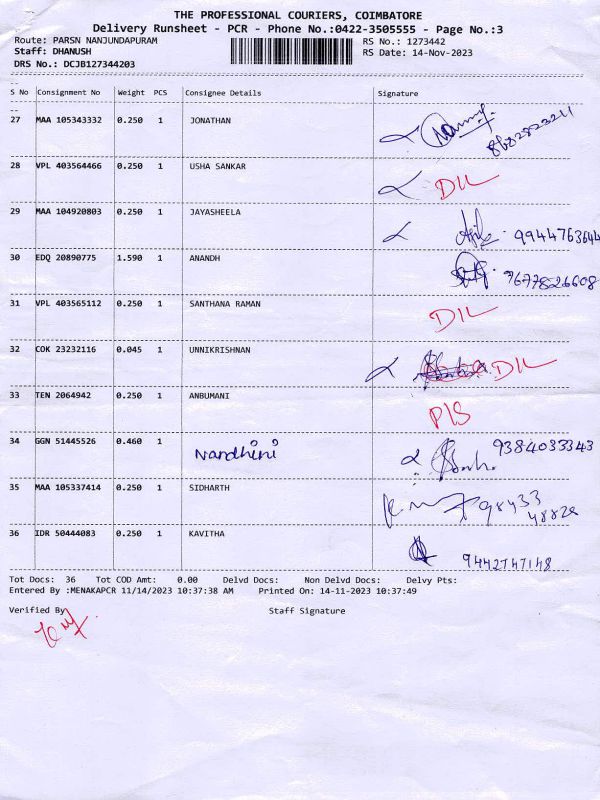 THE PROFESSIONAL COURIERS, COIMBATORE
Delivery Runsheet - PCR - Phone No.:0422-3505555 - Page No.:3
Route: PARSN NANJUNDAPURAM RS No.: 1273442
Staff: DHANUSH RS Date: 14-Nov-2023
DRS No.: DCJB127344203
S No Consignment No Weight PCS Consignee Details Signature
27 MAA 105343332 0.250 1 JONATHAN
28 VPL 403564466 0.250 1 USHA SANKAR DIL
29 MAA 104920803 0.250 1 JAYASHEELA 9944763644
30 EDQ 20890775 1.590 1 ANANDH 7677826608
31 VPL 403565112 0.250 1 SANTHANA RAMAN DIL
32 COK 23232116 0.045 1 UNNIKRISHNAN DIL
33 TEN 2064942 0.250 1 ANBUMANI P/S
34 GGN 51445526 0.460 1 Nandhini 9384033343
35 MAA 105337414 0.250 1 SIDHARTH
36 IDR 50444083 0.250 1 KAVITHA 9442747148
Tot Docs: 36 Tot COD Amt: 0.00 Delvd Docs: Non Delvd Docs: Delvy Pts:
Entered By :MENAKAPCR 11/14/2023 10:37:38 AM Printed On: 14-11-2023 10:37:49
Verified By Staff Signature